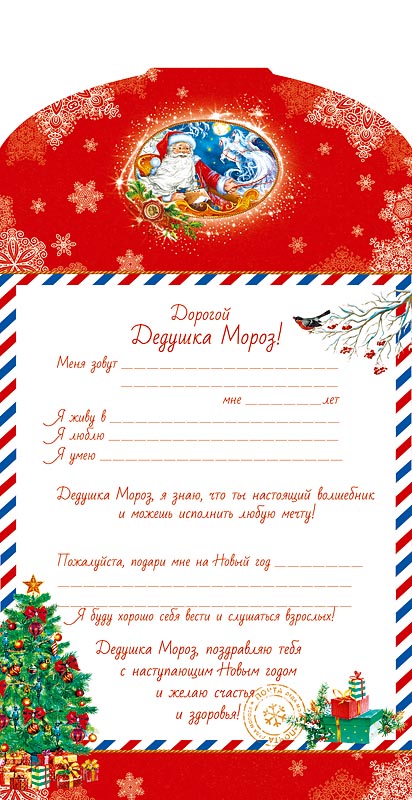 Дорогой
Дедушка Мороз!
Меня зовут ____________________
____________________
мне __________ лет
Я живу в ____________________
Я люблю ____________________
Я умею ____________________
Дедушка Мороз, я знаю, что ты настоящий волшебник
и можешь исполнить любую мечту!
Пожалуйста, подари мне на Новый год __________
____________________
____________________
Я буду хорошо себя вести и слушаться взрослых!
Дедушка Мороз, поздравляю тебя
с наступающим Новым годом
и желаю счастья
и здоровья!
ПОЧТА
ПОЧТА